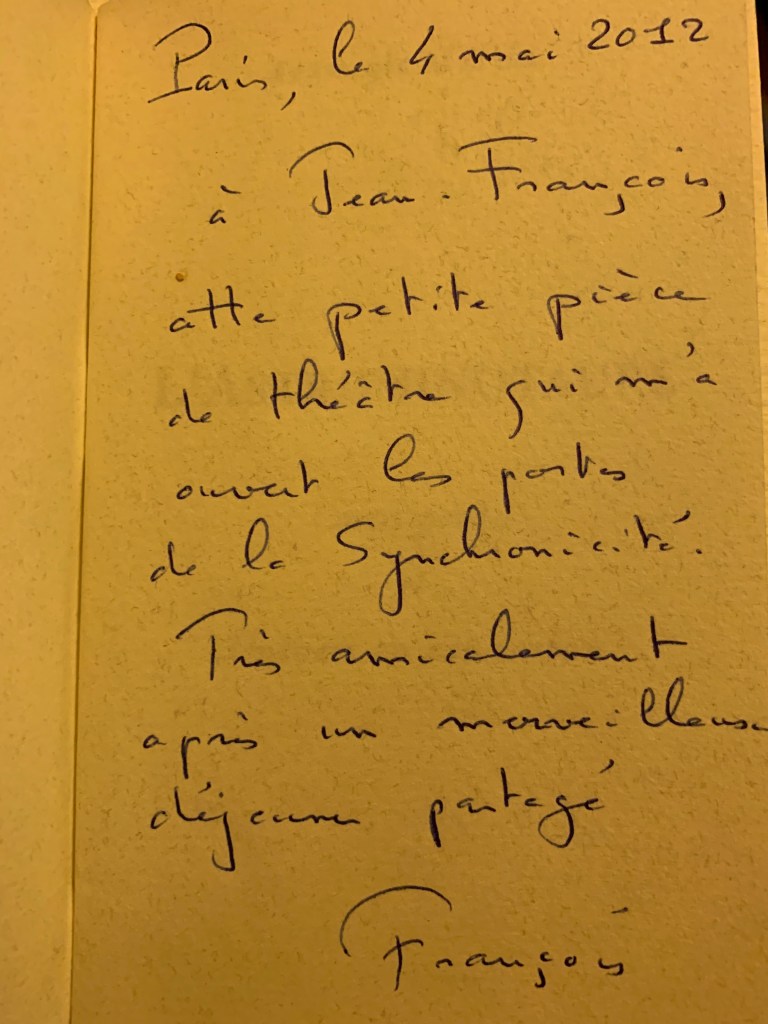 Paris, le 4 mai 2012
à Jean-François,
cette petite pièce
de théâtre qui m'a
ouvert les portes
de la Synchronicité.
Très amicalement
après un merveilleux
déjeuner partagé
François